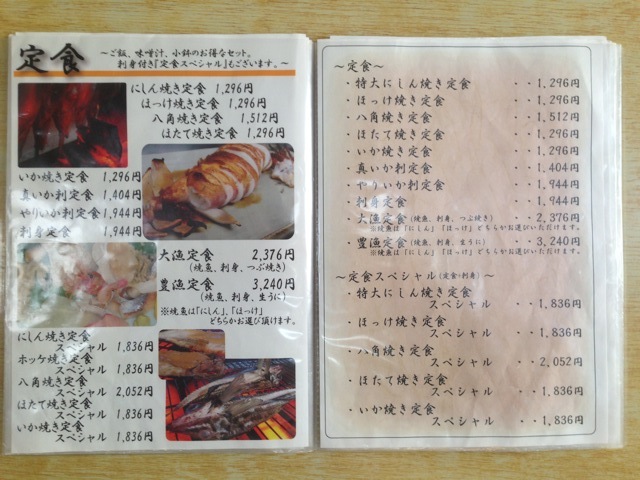 定食
～ご飯、味噌汁、小鉢のお得なセット。
刺身付き『定食スペシャル』もございます。～
にしん焼き定食 1,296円
ほっけ焼き定食 1,296円
八角焼き定食 1,512円
ほたて焼き定食 1,296円
いか焼き定食 1,296円
真いか刺定食 1,404円
やりいか刺定食 1,944円
刺身定食 1,944円
大漁定食 2,376円
(焼魚、刺身、つぶ焼き)
豊漁定食 3,240円
(焼魚、刺身、生うに)
※焼魚は「にしん」、「ほっけ」
どちらかお選び頂けます。
にしん焼き定食
スペシャル 1,836円
ホッケ焼き定食
スペシャル 1,836円
八角焼き定食
スペシャル 2,052円
ほたて焼き定食
スペシャル 1,836円
いか焼き定食
スペシャル 1,836円
～定食～
・特大にしん焼き定食 ・・1,296円
・ほっけ焼き定食 ・・1,296円
・八角焼き定食 ・・1,512円
・ほたて焼き定食 ・・1,296円
・いか焼き定食 ・・1,296円
・真いか刺定食 ・・1,404円
・やりいか刺定食 ・・1,944円
・刺身定食 ・・1,944円
・大漁定食(焼魚、刺身、つぶ焼き) ・・2,376円
※焼魚は「にしん」「ほっけ」どちらかお選びいただけます。
・豊漁定食(焼魚、刺身、生うに) ・・3,240円
※焼魚は「にしん」「ほっけ」どちらかお選びいただけます。
～定食スペシャル(定食+刺身)～
・特大にしん焼き定食
スペシャル ・・1,836円
・ほっけ焼き定食
スペシャル ・・1,836円
・八角焼き定食
スペシャル ・・2,052円
・ほたて焼き定食
スペシャル ・・1,836円
・いか焼き定食
スペシャル ・・1,836円